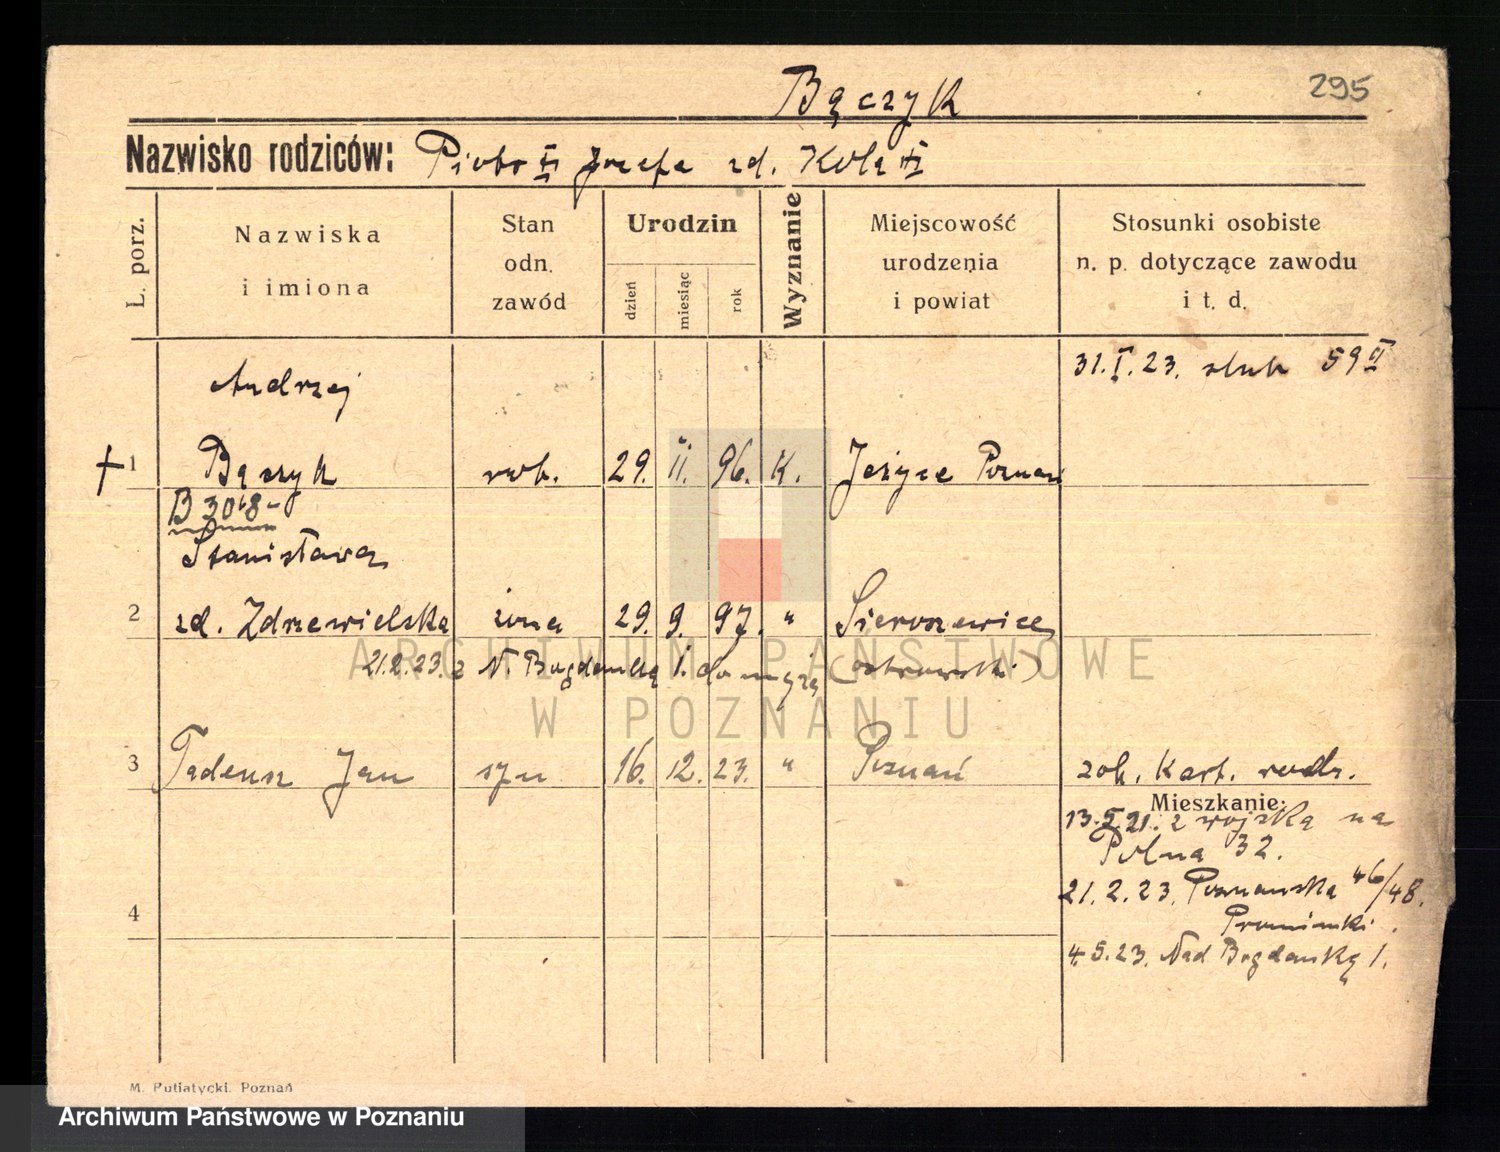 Bączyk
295
Nazwisko rodziców: Piotr Józefa zd.
L. porz.
Nazwiska
i imiona
Stan
odn.
zawód
Urodzin
dzień
miesiąc
rok
Wyznanie
Miejscowość
urodzenia
i powiat
Stosunki osobiste
n. p. dotyczące zawodu
i t. d.
31. I. 23. slub 59 II
Andrzej
1 Bączyk rob. 29. 11. 96. K. Jeżyce Poznań
B 3068-
Stanisława
2 zd. Zdrzewielska żona 29. 9. 97. " Sieroszewice
21.2.23. z N. Bogdanką 1. do męża (ostrowski)
3 Tadeusz Jan syn 16. 12. 23. " Poznań zob. Kart. rodz.
Mieszkanie:
13.5.21. z wojska na
Polna 32.
4
21.2.23. Poznańska 46/48.
4.5.23. Nad Bogdanką 1.
M. Putiatycki. Poznań
ARCHIWUM PAŃSTWOWE
W POZNANIU
Archiwum Państwowe w Poznaniu